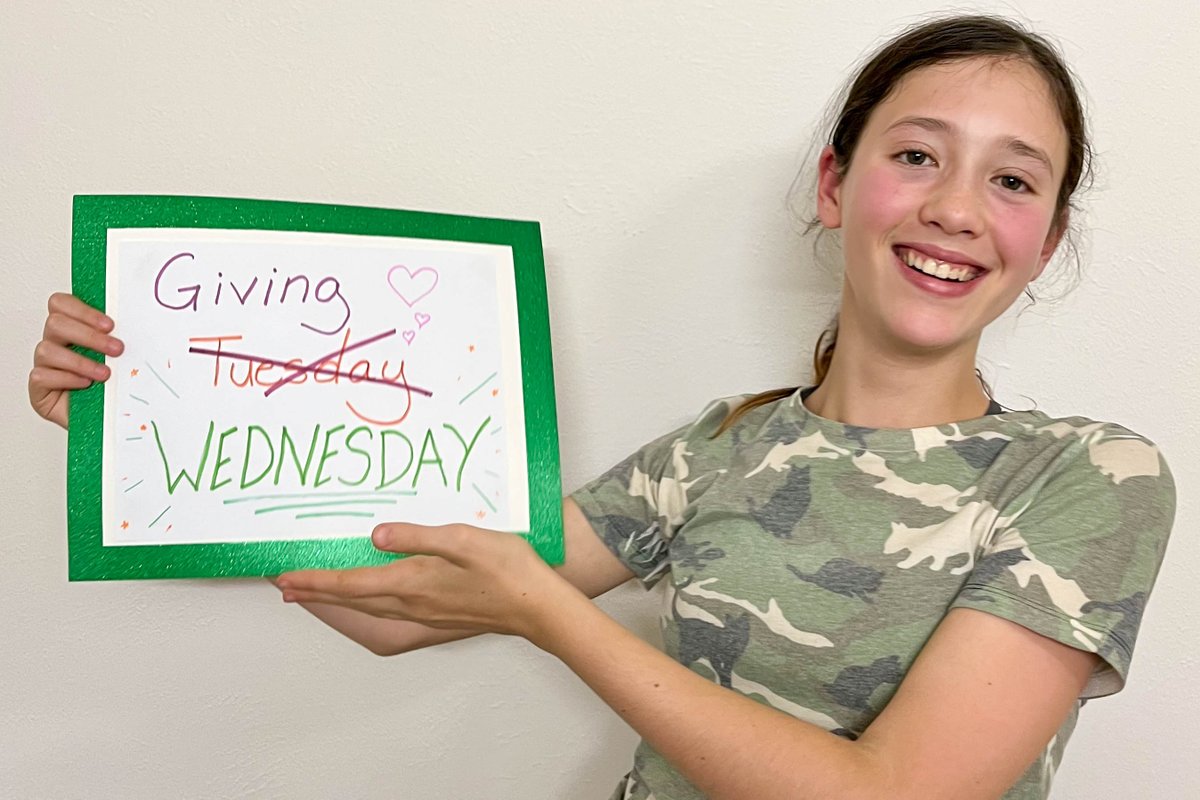 Giving
Tuesday
WEDNESDAY